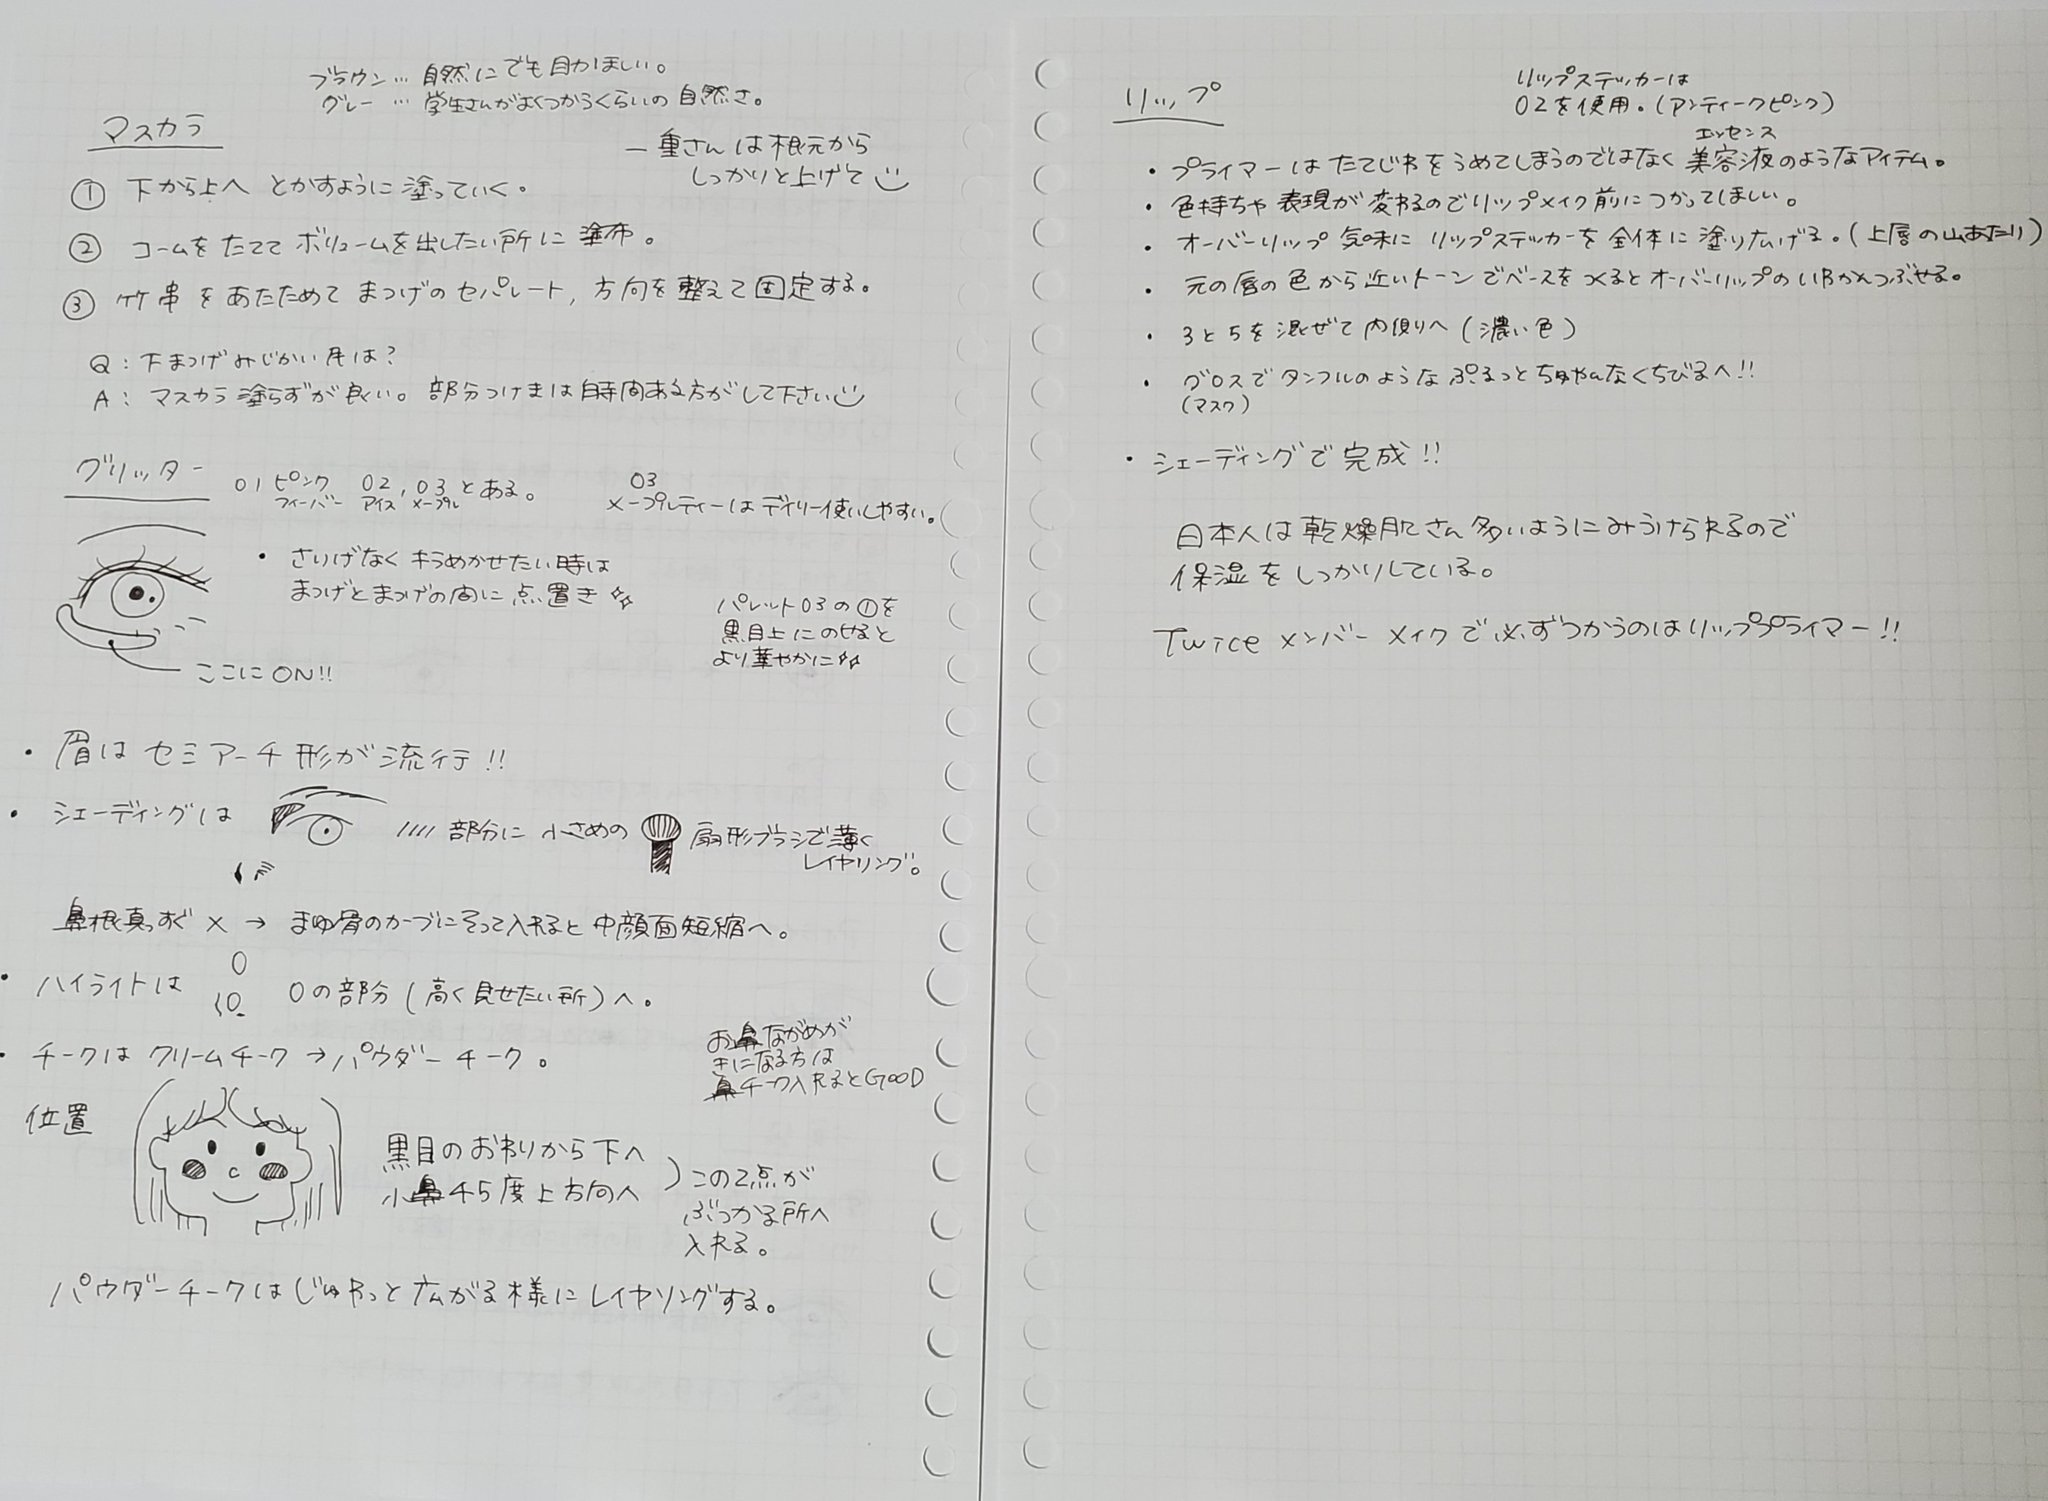 ブラウン… 自然にでも目力ほしい。
グレー … 学生さんがよくつかうくらいの自然さ。
マスカラ
一重さんは根元から
しっかりと上げて
① 下から上へ とかすように塗っていく。
② コームをたてて ボリュームを出したい所に塗布。
③ 竹串をあたためて まつげのセパレート, 方向を整えて固定する。
Q : 下まつげみじかい 方は?
A : マスカラ塗らずが良い。部分つけまは時間ある方がして下さい
グリッター
01 ピンク 02, 03 とある。
フィーバー アイス メープル
03
メープルティーはデイリー使いしやすい。
・ さりげなくキラめかせたい時は
まつげとまつげの間に点置き
パレット03の①を
黒目上にのせると
より華やかに
ここにON!!
・ 眉はセミアーチ形が流行!!
・ シェーディングは //// 部分に 小さめの 扇形ブラシで薄く
レイヤリング。
鼻根真っすぐ × → まゆ骨のカーブにそって入れると中顔面短縮へ。
・ ハイライトは 0の部分 (高く見せたい所)へ。
・ チークは クリームチーク → パウダーチーク。
お鼻ながめが
きになる方は
鼻チーク入れるとGOOD
位置
黒目のおわりから下へ
小鼻45度上方向へ
この2点が
ぶつかる所へ
入れる。
パウダーチークはじゅわっと広がる様にレイヤリングする。
リップ
リップステッカーは
02を使用。(アンティークピンク)
エッセンス
・ プライマーはたてじわをうめてしまうのではなく 美容液のようなアイテム。
・ 色持ちや表現が変わるのでリップメイク前につかってほしい。
・ オーバーリップ気味に リップステッカーを全体に塗り広げる。(上唇の山あたり)
・ 元の唇の色から近いトーンでベースをつくるとオーバーリップのいわかんつぶせる。
・ 3と5を混ぜて内側へ (濃い色)
・ グロスでタンフルのような ぷるっとちゅやんなくちびるへ!!
(マスク)
・ シェーディングで完成!!
日本人は乾燥肌さん多いようにみうけられるので
保湿をしっかりしている。
Twice メンバー メイクで必ずつかうのはリッププライマー!!